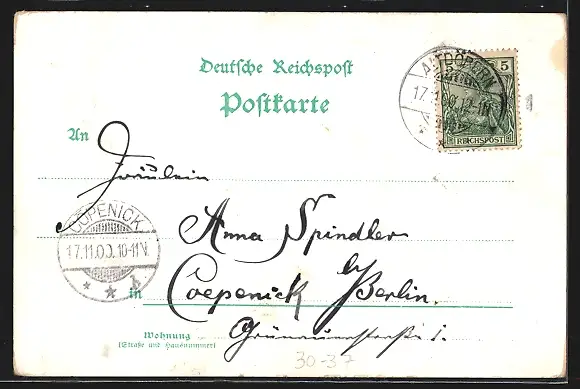 Deutsche Reichspost
Postkarte
ALTDÖBERN
17.11.00.
5
REICHSPOST
An
Fräulein
Anna Spindler
CÖPENICK
17.11.00. 10-11 N.
in Coepenick b/Berlin.
Grünauerstraße 1.
Wohnung
(Straße und Hausnummer)
30-3